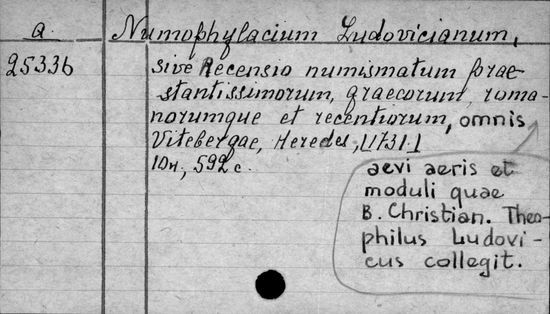 a. Numophylacium Ludovicianum,
25336 sive Recensio numismatum prae-
stantissimorum, graecorum, roma-
norumque et recentiorum, omnis
Vitebergae, Heredes, [1731.]
10н., 592 с.
aevi aeris et
moduli quae
B. Christian. Theo-
philus Ludovi-
cus collegit.